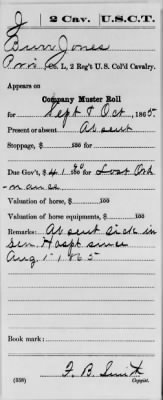 J 2 Cav. U.S.C.T.
Burr Jones
Pvt, Co. L, 2 Reg't U. S. Col'd Cavalry.
Appears on
Company Muster Roll
for Sept & Oct, 1865
Present or absent Absent
Stoppage, $ 100 for
Due Gov't, $41 90/100 for Lost Ord-
nance
Valuation of horse, $ 100
Valuation of horse equipments, $ 100
Remarks: Absent sick in
Gen. Hospt since
Aug 1, 1865
Book mark:
F. B. Smith
(359) Copyist.